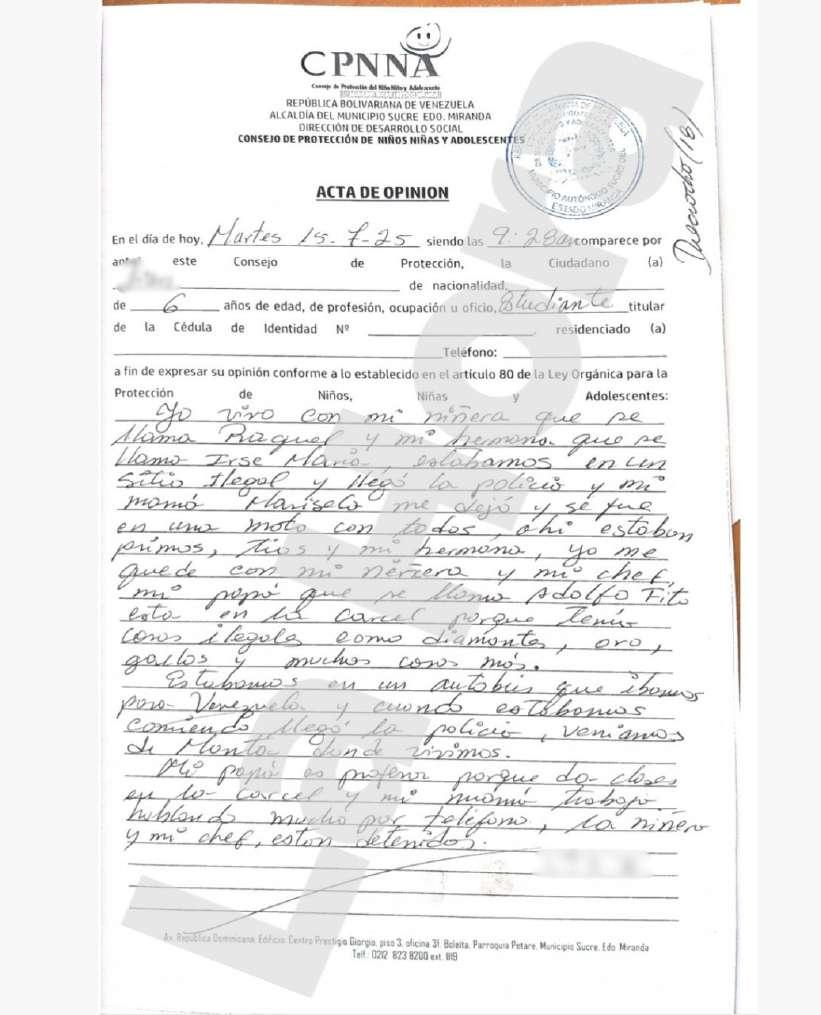 CPNNA
Consejo de Protección del Niño Niña y Adolescente
REPÚBLICA BOLIVARIANA DE VENEZUELA
ALCALDÍA DEL MUNICIPIO SUCRE EDO. MIRANDA
DIRECCIÓN DE DESARROLLO SOCIAL
CONSEJO DE PROTECCIÓN DE NIÑOS NIÑAS Y ADOLESCENTES
MUNICIPIO AUTÓNOMO SUCRE DEL
ESTADO MIRANDA
Dieciocho (18)
ACTA DE OPINION
En el día de hoy, Martes 15-7-25 siendo las 9:28am comparece por
ante este Consejo de Protección, la Ciudadano (a)
de nacionalidad,
de 6 años de edad, de profesión, ocupación u oficio, Estudiante titular
de la Cédula de Identidad Nº residenciado (a)
Teléfono:
a fin de expresar su opinión conforme a lo establecido en el artículo 80 de la Ley Orgánica para la
Protección de Niños, Niñas y Adolescentes:
Yo vivo con mi niñera que se
llama Raquel y mi hermana que se
llama Irse María, estabamos en un
sitio Ilegal y llegó la policia y mi
mamá Marisela me dejó y se fue
en una moto con todos, ahi estaban
primos, tios y mi hermana, yo me
quede con mi niñera y mi chef,
mi papá que se llama Adolfo Fito
esta en la carcel porque tenia
cosas ilegales como diamantes, oro,
gallos y muchas cosas más.
Estabamos en un autobús que ibamos
para Venezuela y cuando estabamos
comiendo llegó la policia, veniamos
de Manta donde vivimos.
Mi papá es profesor porque da clases
en la carcel y mi mamá trabaja
hablando mucho por teléfono, la niñera
y mi chef, estan detenidos.
Av. República Dominicana, Edificio, Centro Prestigio Giorgio, piso 3, oficina 31, Boleita, Parroquia Petare, Municipio Sucre, Edo. Miranda
Telf.: 0212 823 8200 ext. 819
La Hora